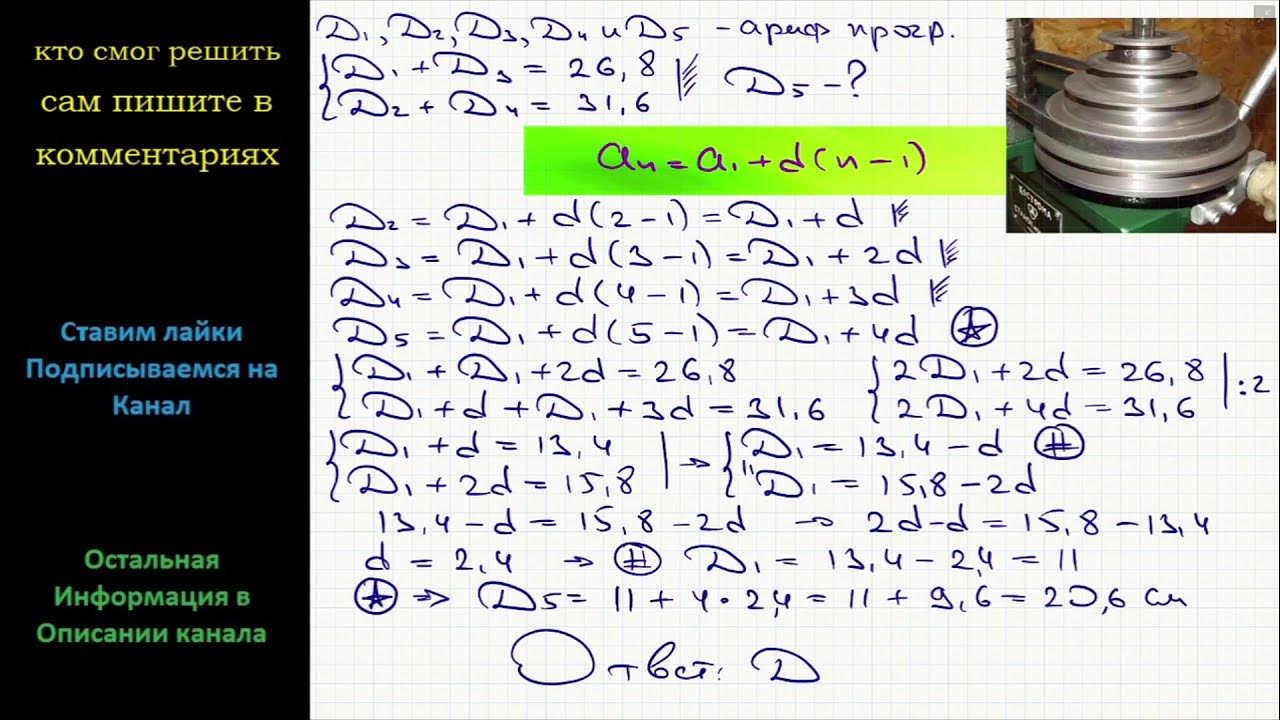 кто смог решить
сам пишите в
комментариях
Ставим лайки
Подписываемся на
Канал
Остальная
Информация в
Описании канала
D₁, D₂, D₃, D₄ и D₅ - ариф прогр.
D₁ + D₃ = 26,8
D₂ + D₄ = 31,6
D₅ - ?
aₙ = a₁ + d(n-1)
D₂ = D₁ + d(2-1) = D₁ + d
D₃ = D₁ + d(3-1) = D₁ + 2d
D₄ = D₁ + d(4-1) = D₁ + 3d
D₅ = D₁ + d(5-1) = D₁ + 4d
{D₁ + D₁ + 2d = 26,8 {2D₁ + 2d = 26,8 | :2
{D₁ + d + D₁ + 3d = 31,6 {2D₁ + 4d = 31,6
{D₁ + d = 13,4 | → {D₁ = 13,4 - d #
{D₁ + 2d = 15,8 {D₁ = 15,8 - 2d
13,4 - d = 15,8 - 2d → 2d - d = 15,8 - 13,4
d = 2,4 → # D₁ = 13,4 - 2,4 = 11
⇒ D₅ = 11 + 4·2,4 = 11 + 9,6 = 20,6 см
Ответ: D